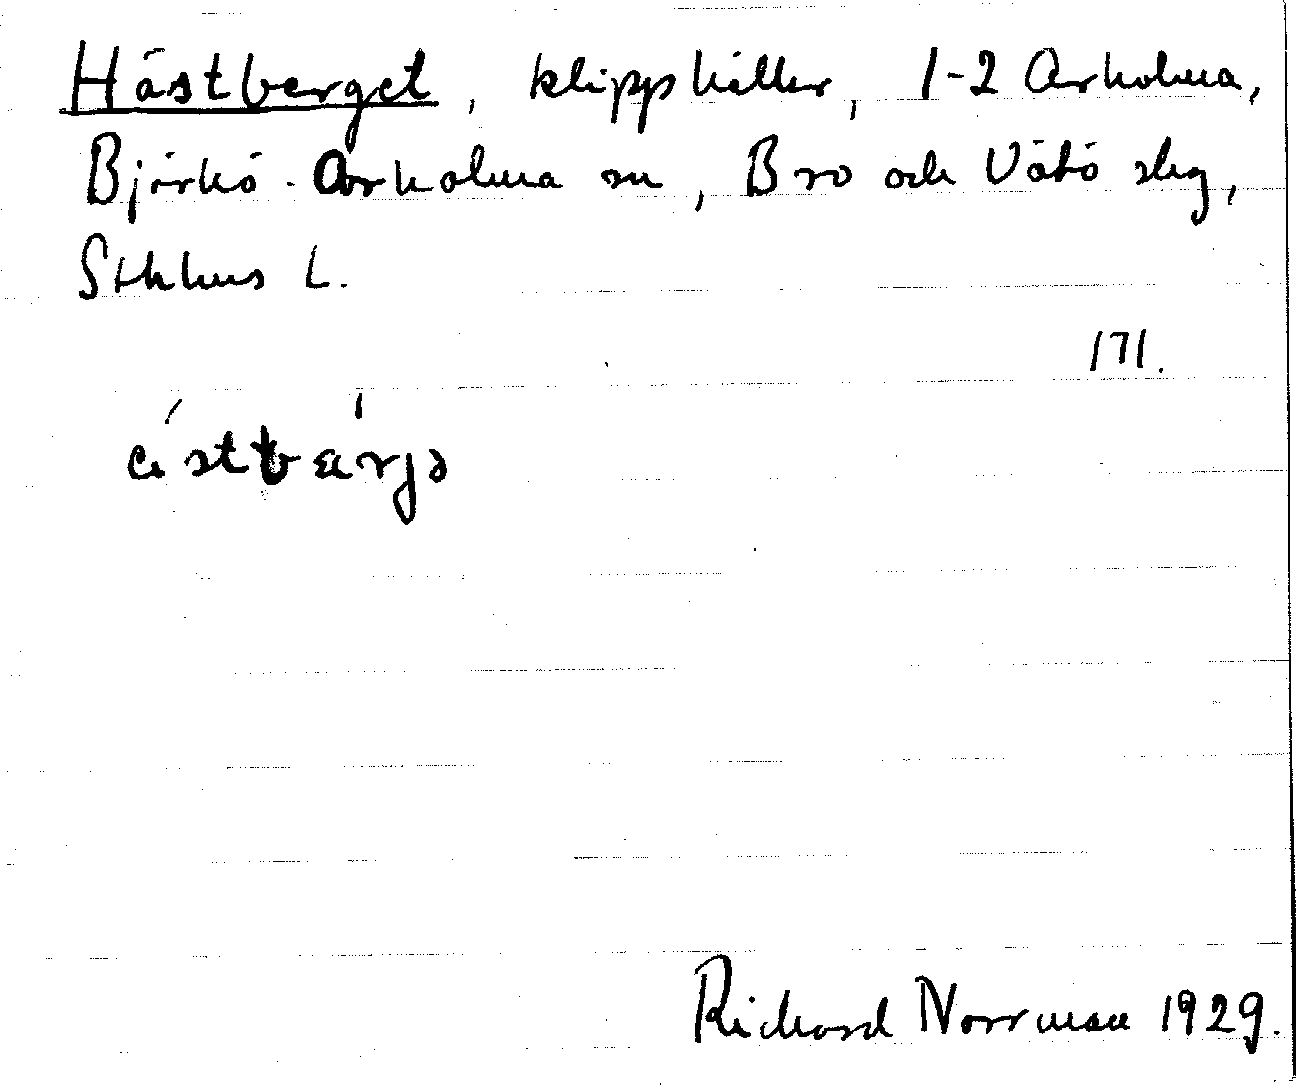 Hästberget, klipphällar, 1-2 Arholma,
Björkö-Arholma sn, Bro och Vätö slg,
Sthlms L.
171.
Richard Norrman 1929.